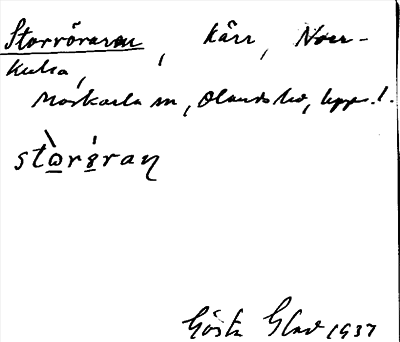 Storröraran, Kärr, Norr-
kulla,
Morkarla sn, Olands hd, Uppl.
stòrö́ran
Gösta Glad 1937